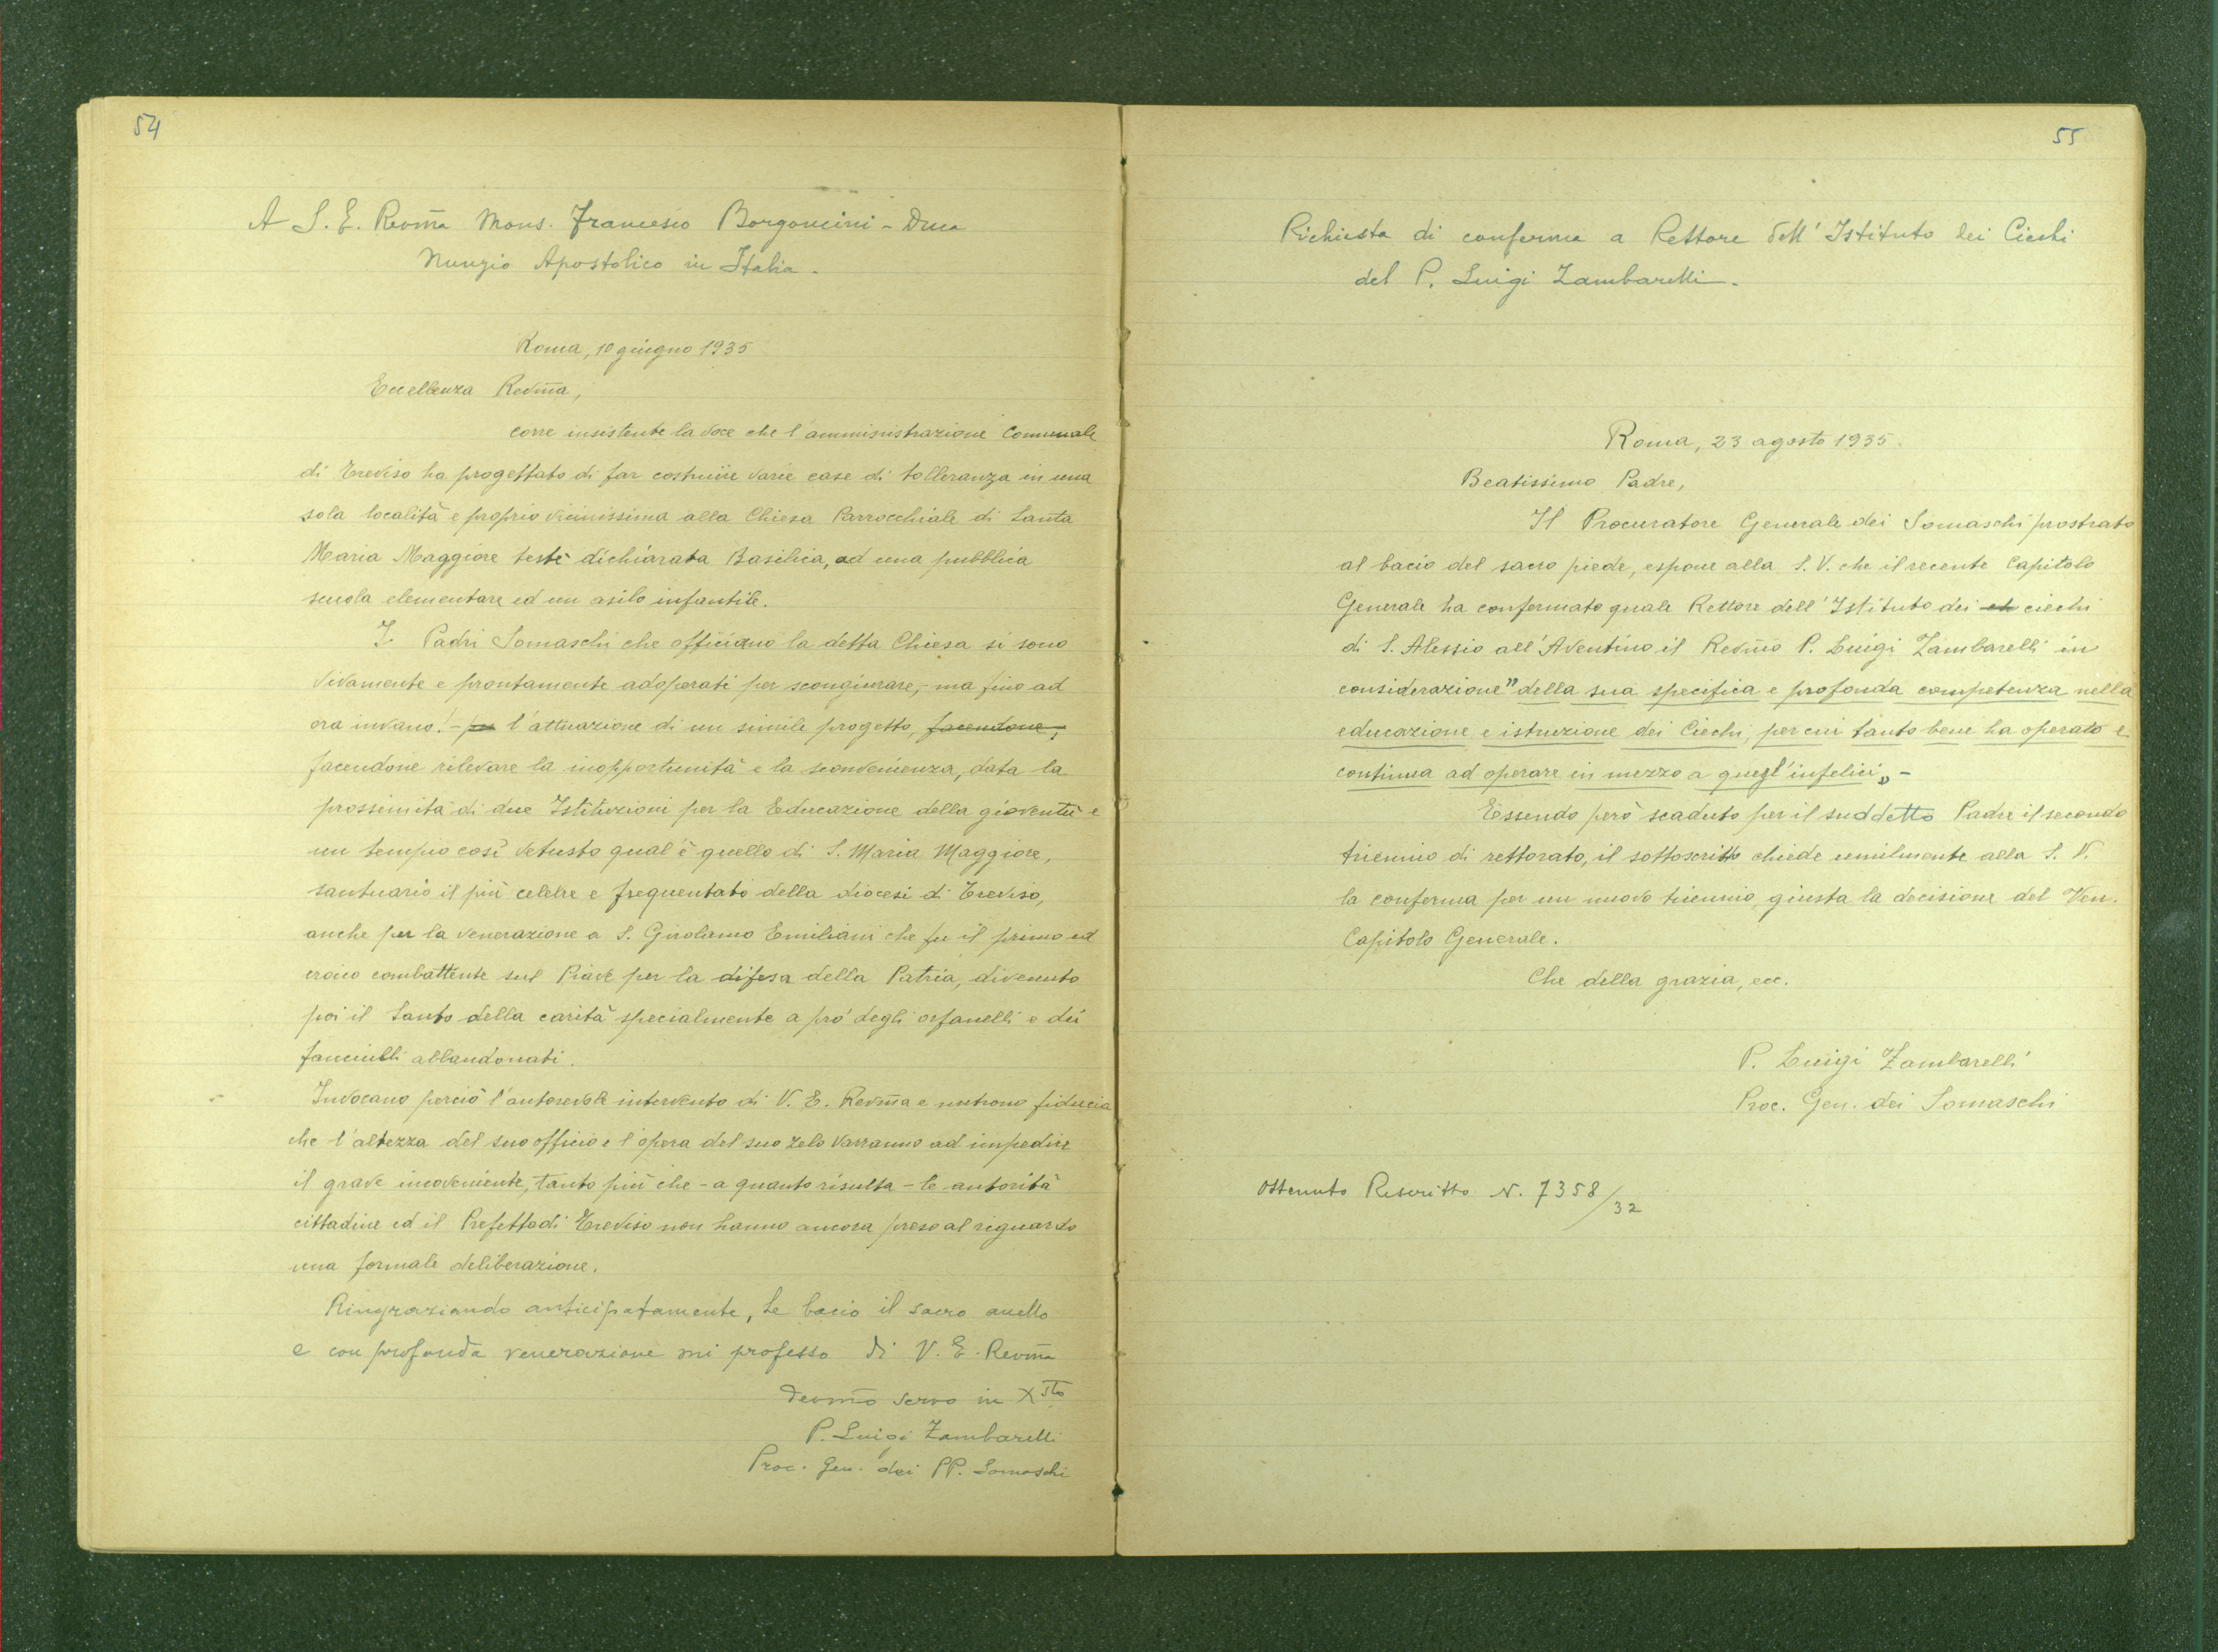 54
A S. E. Revm̃a Mons. Francesco Borgoncini - Duca
Nunzio Apostolico in Italia.
Roma, 10 giugno 1935
Eccellenza Revm̃a,
corre insistente la voce che l'amministrazione Comunale
di Treviso ha progettato di far costruire varie case di tolleranza in una
sola località e proprio vicinissima alla Chiesa Parrocchiale di Santa
Maria Maggiore testè dichiarata Basilica, ad una pubblica
scuola elementare ed un asilo infantile.
I Padri Somaschi che officiano la detta Chiesa si sono
vivamente e prontamente adoperati per scongiurare, - ma fino ad
ora invano! - per l'attuazione di un simile progetto, facendone,
facendone rilevare la inopportunità e la sconvenienza, data la
prossimità di due Istituzioni per la Educazione della gioventù e
un tempio così vetusto qual'è quello di S. Maria Maggiore,
santuario il più celebre e frequentato della diocesi di Treviso,
anche per la venerazione a S. Girolamo Emiliani che fu il primo ed
eroico combattente sul Piave per la difesa della Patria, divenuto
poi il Santo della carità specialmente a pro' degli orfanelli e dei
fanciulli abbandonati.
Invocano perciò l'autorevole intervento di V. E. Revm̃a e nutrono fiducia
che l'altezza del suo officio e l'opera del suo zelo varranno ad impedire
il grave inconveniente, tanto più che - a quanto risulta - le autorità
cittadine ed il Prefetto di Treviso non hanno ancora preso al riguardo
una formale deliberazione.
Ringraziando anticipatamente, Le bacio il sacro anello
e con profonda venerazione mi professo di V. E. Revm̃a
Devm̃o servo in Xsto
P. Luigi Zambarelli
Proc. Gen. dei PP. Somaschi
55
Richiesta di conferma a Rettore dell'Istituto dei Ciechi
del P. Luigi Zambarelli.
Roma, 23 agosto 1935.
Beatissimo Padre,
Il Procuratore Generale dei Somaschi prostrato
al bacio del sacro piede, espone alla S. V. che il recente Capitolo
Generale ha confermato quale Rettore dell'Istituto dei ch ciechi
di S. Alessio all'Aventino il Revm̃o P. Luigi Zambarelli in
considerazione "della sua specifica e profonda competenza nella
educazione e istruzione dei Ciechi, per cui tanto bene ha operato e
continua ad operare in mezzo a quegl'infelici„ -
Essendo però scaduto per il suddetto Padre il secondo
triennio di rettorato, il sottoscritto chiede umilmente alla S. V.
la conferma per un nuovo triennio, giusta la decisione del Ven.
Capitolo Generale.
Che della grazia, ecc.
P. Luigi Zambarelli
Proc. Gen. dei Somaschi
Ottenuto Rescritto N. 7358/32